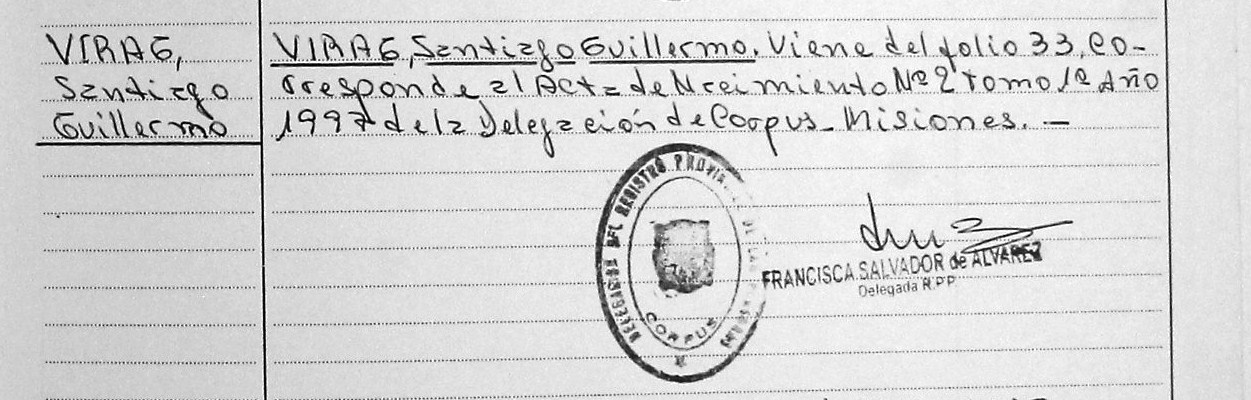 VIRAG,
Santiago
Guillermo
VIRAG, Santiago Guillermo. Viene del folio 33, Co-
rresponde al Acta de Nacimiento Nº 2 Tomo 1º Año
1997 de la Delegación de Corpus - Misiones. —
DELEGACION DEL REGISTRO PROVINCIAL DE LAS
CORPUS
FRANCISCA SALVADOR de ALVAREZ
Delegada R.P.P